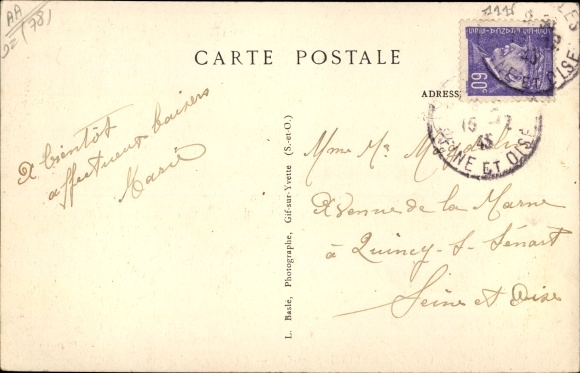 AA
(78)
CARTE POSTALE
ADRESSE
60c
15
45
SEINE ET OISE
A bientôt
affectueux baisers
Marie
L. Basle, Photographe, Gif-sur-Yvette (S.-et-O.)
Mme Mr
Avenue de la Marne
à Quincy-S-Sénart
Seine et Oise